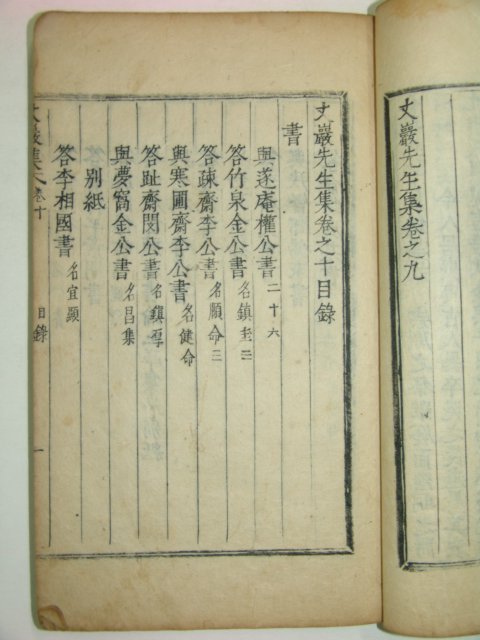 丈巖先生集卷之九
丈巖先生集卷之十目錄
書
與遂庵權公書 二十六
答竹泉金公書 名鎭圭 三
答疎齋李公書 名頤命 三
與寒圃齋李公書 名健命
答趾齋閔公書 名鎭厚
與夢窩金公書 名昌集
別紙
答李相國書 名宜顯
丈巖集 卷十 目錄 一